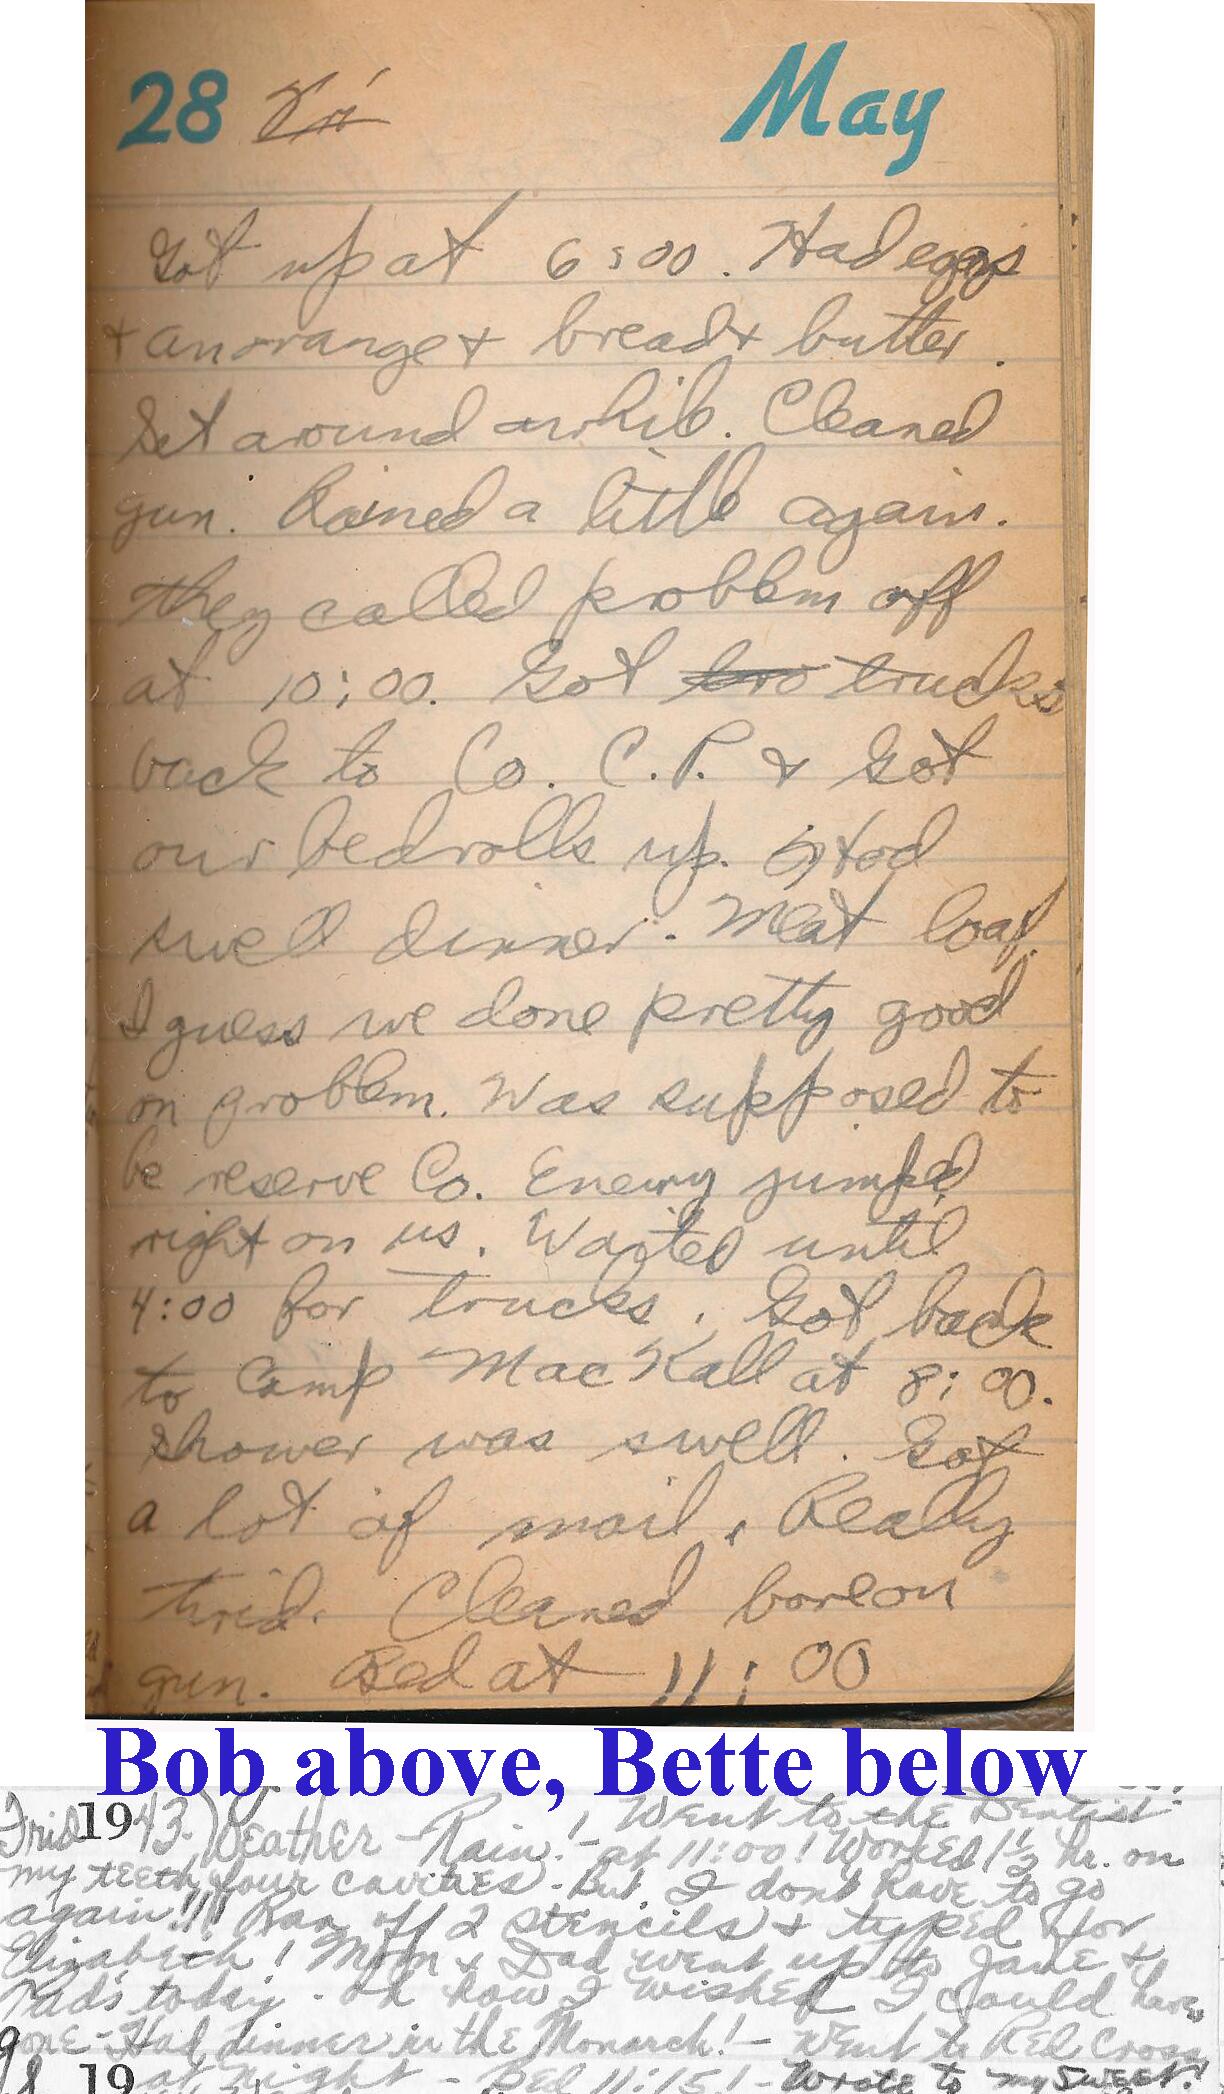 28 Fri May
Got up at 6:00. Had eggs
+ an orange + bread + butter.
Set around awhile. Cleaned
gun. Rained a little again.
They called problem off
at 10:00. Got two trucks
back to Co. C.P. & Got
our bedrolls up. Had
swell dinner. Meat loaf.
I guess we done pretty good
on problem. Was supposed to
be reserve Co. Enemy jumped
right on us. Waited until
4:00 for trucks. Got back
to Camp MacKall at 8:00.
Shower was swell. Got
a lot of mail. Really
tired. Cleaned bore on
gun. Bed at 11:00
Bob above, Bette below
Frid 1943. Weather - Rain! - Went to the Dentist
at 11:00! Worked 1 1/2 hr. on
my teeth, four cavities - But I dont have to go
again!!! Ran off 2 stencils & typed for
Elizabeth! Mom & Dad went up to Jane &
Tad's today - oh how I wished I could have
gone - Had dinner in the Monarch! - Went to Red Cross
19 at night - Bed 11:15! - Wrote to my sweet!